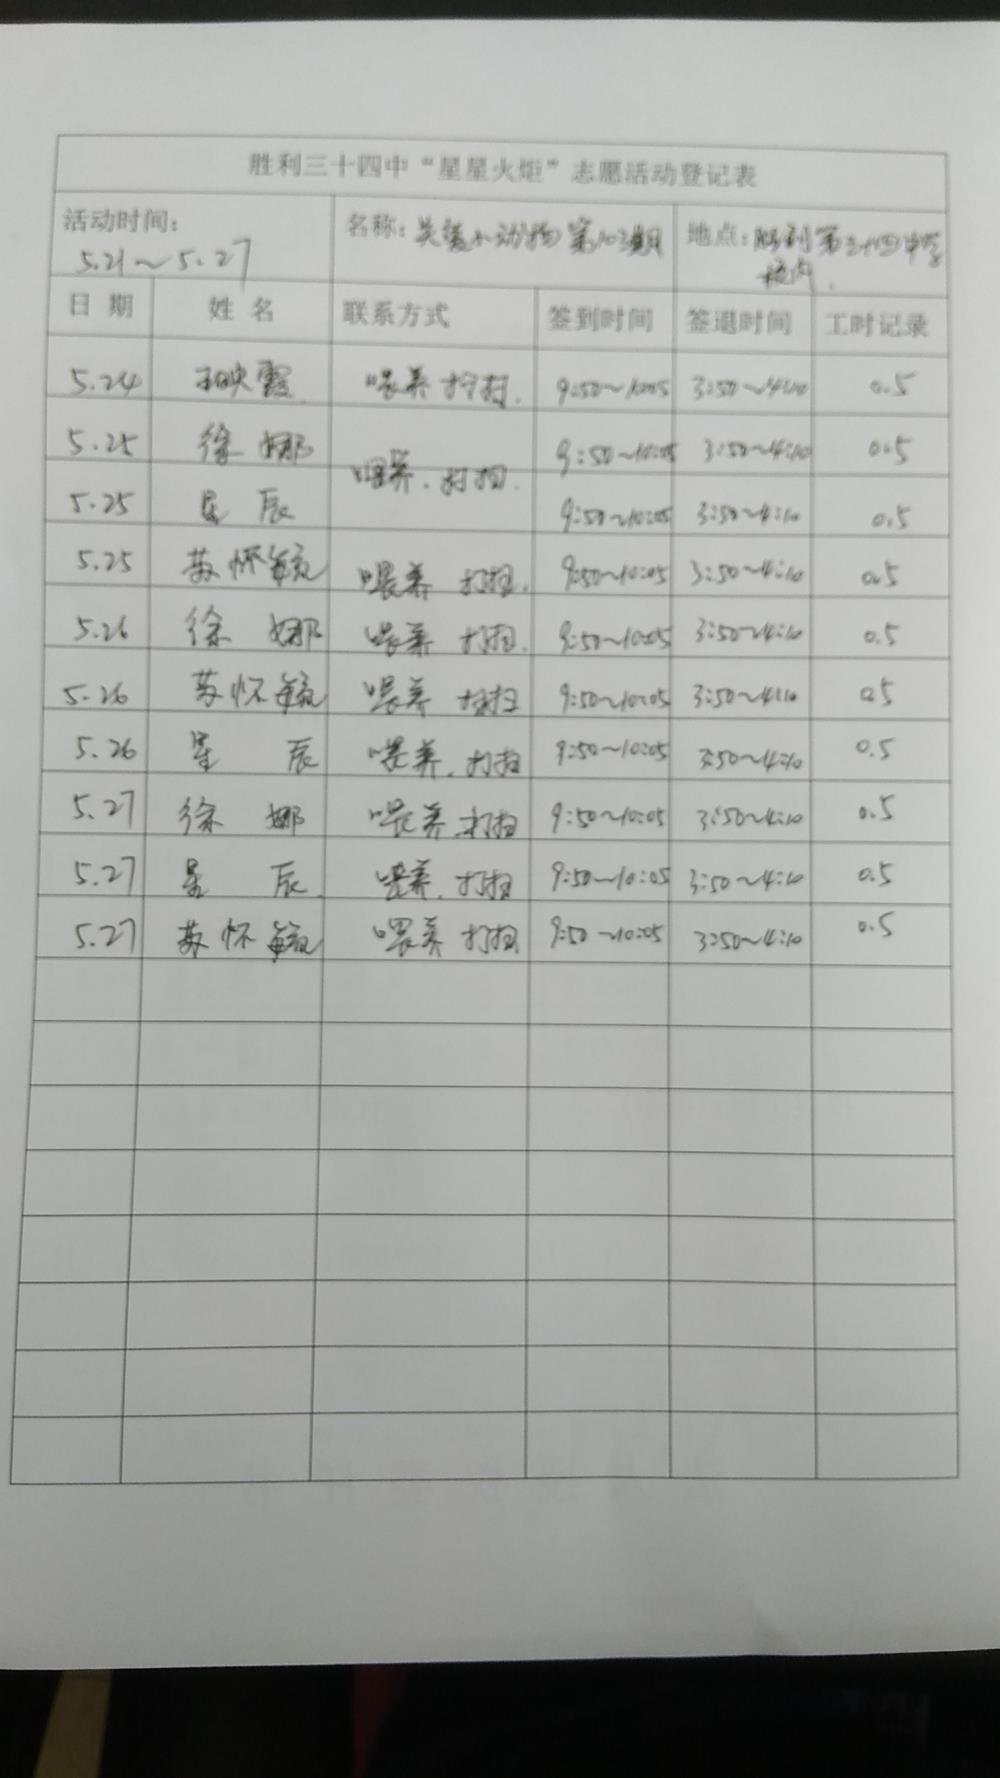 胜利三十四中“星星火炬”志愿活动登记表
活动时间: 名称: 关爱小动物第103期 地点: 胜利第三十四中学
5.21～5.27 校内.
日 期 姓 名 联系方式 签到时间 签退时间 工时记录
5.24 映霞 喂养 打扫. 9:50～10:05 3:50～4:10 0.5
5.25 徐 娜 喂养. 打扫. 9:50～10:05 3:50～4:10 0.5
5.25 星 辰 9:50～10:05 3:50～4:10 0.5
5.25 苏怀毓 喂养 打扫. 9:50～10:05 3:50～4:10 0.5
5.26 徐 娜 喂养 打扫. 9:50～10:05 3:50～4:10 0.5
5.26 苏怀毓 喂养 打扫 9:50～10:05 3:50～4:10 0.5
5.26 星 辰 喂养. 打扫 9:50～10:05 3:50～4:10 0.5
5.27 徐 娜 喂养 打扫 9:50～10:05 3:50～4:10 0.5
5.27 星 辰. 喂养. 打扫 9:50～10:05 3:50～4:10 0.5
5.27 苏怀毓 喂养 打扫 9:50～10:05 3:50～4:10 0.5